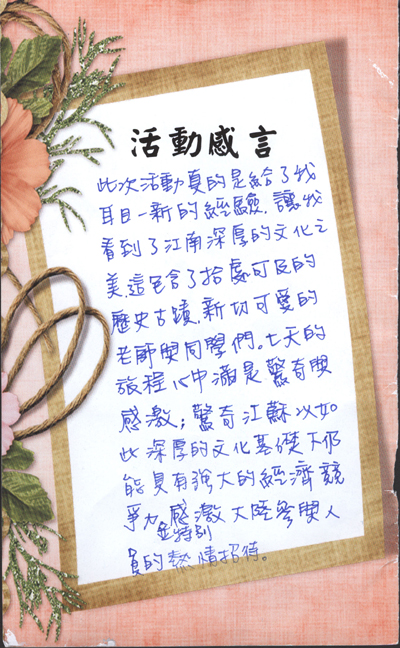 活動感言
此次活動真的是給了我
耳目一新的經驗,讓我
看到了江南深厚的文化之
美,這包含了拾處可及的
歷史古蹟,新切可愛的
老師與同學們。七天的
旅程心中滿是驚奇與
感激;驚奇江蘇以如
此深厚的文化基礎下仍
能具有強大的經濟競
爭力,感激大陸參與人
並特別
員的熱情招待。